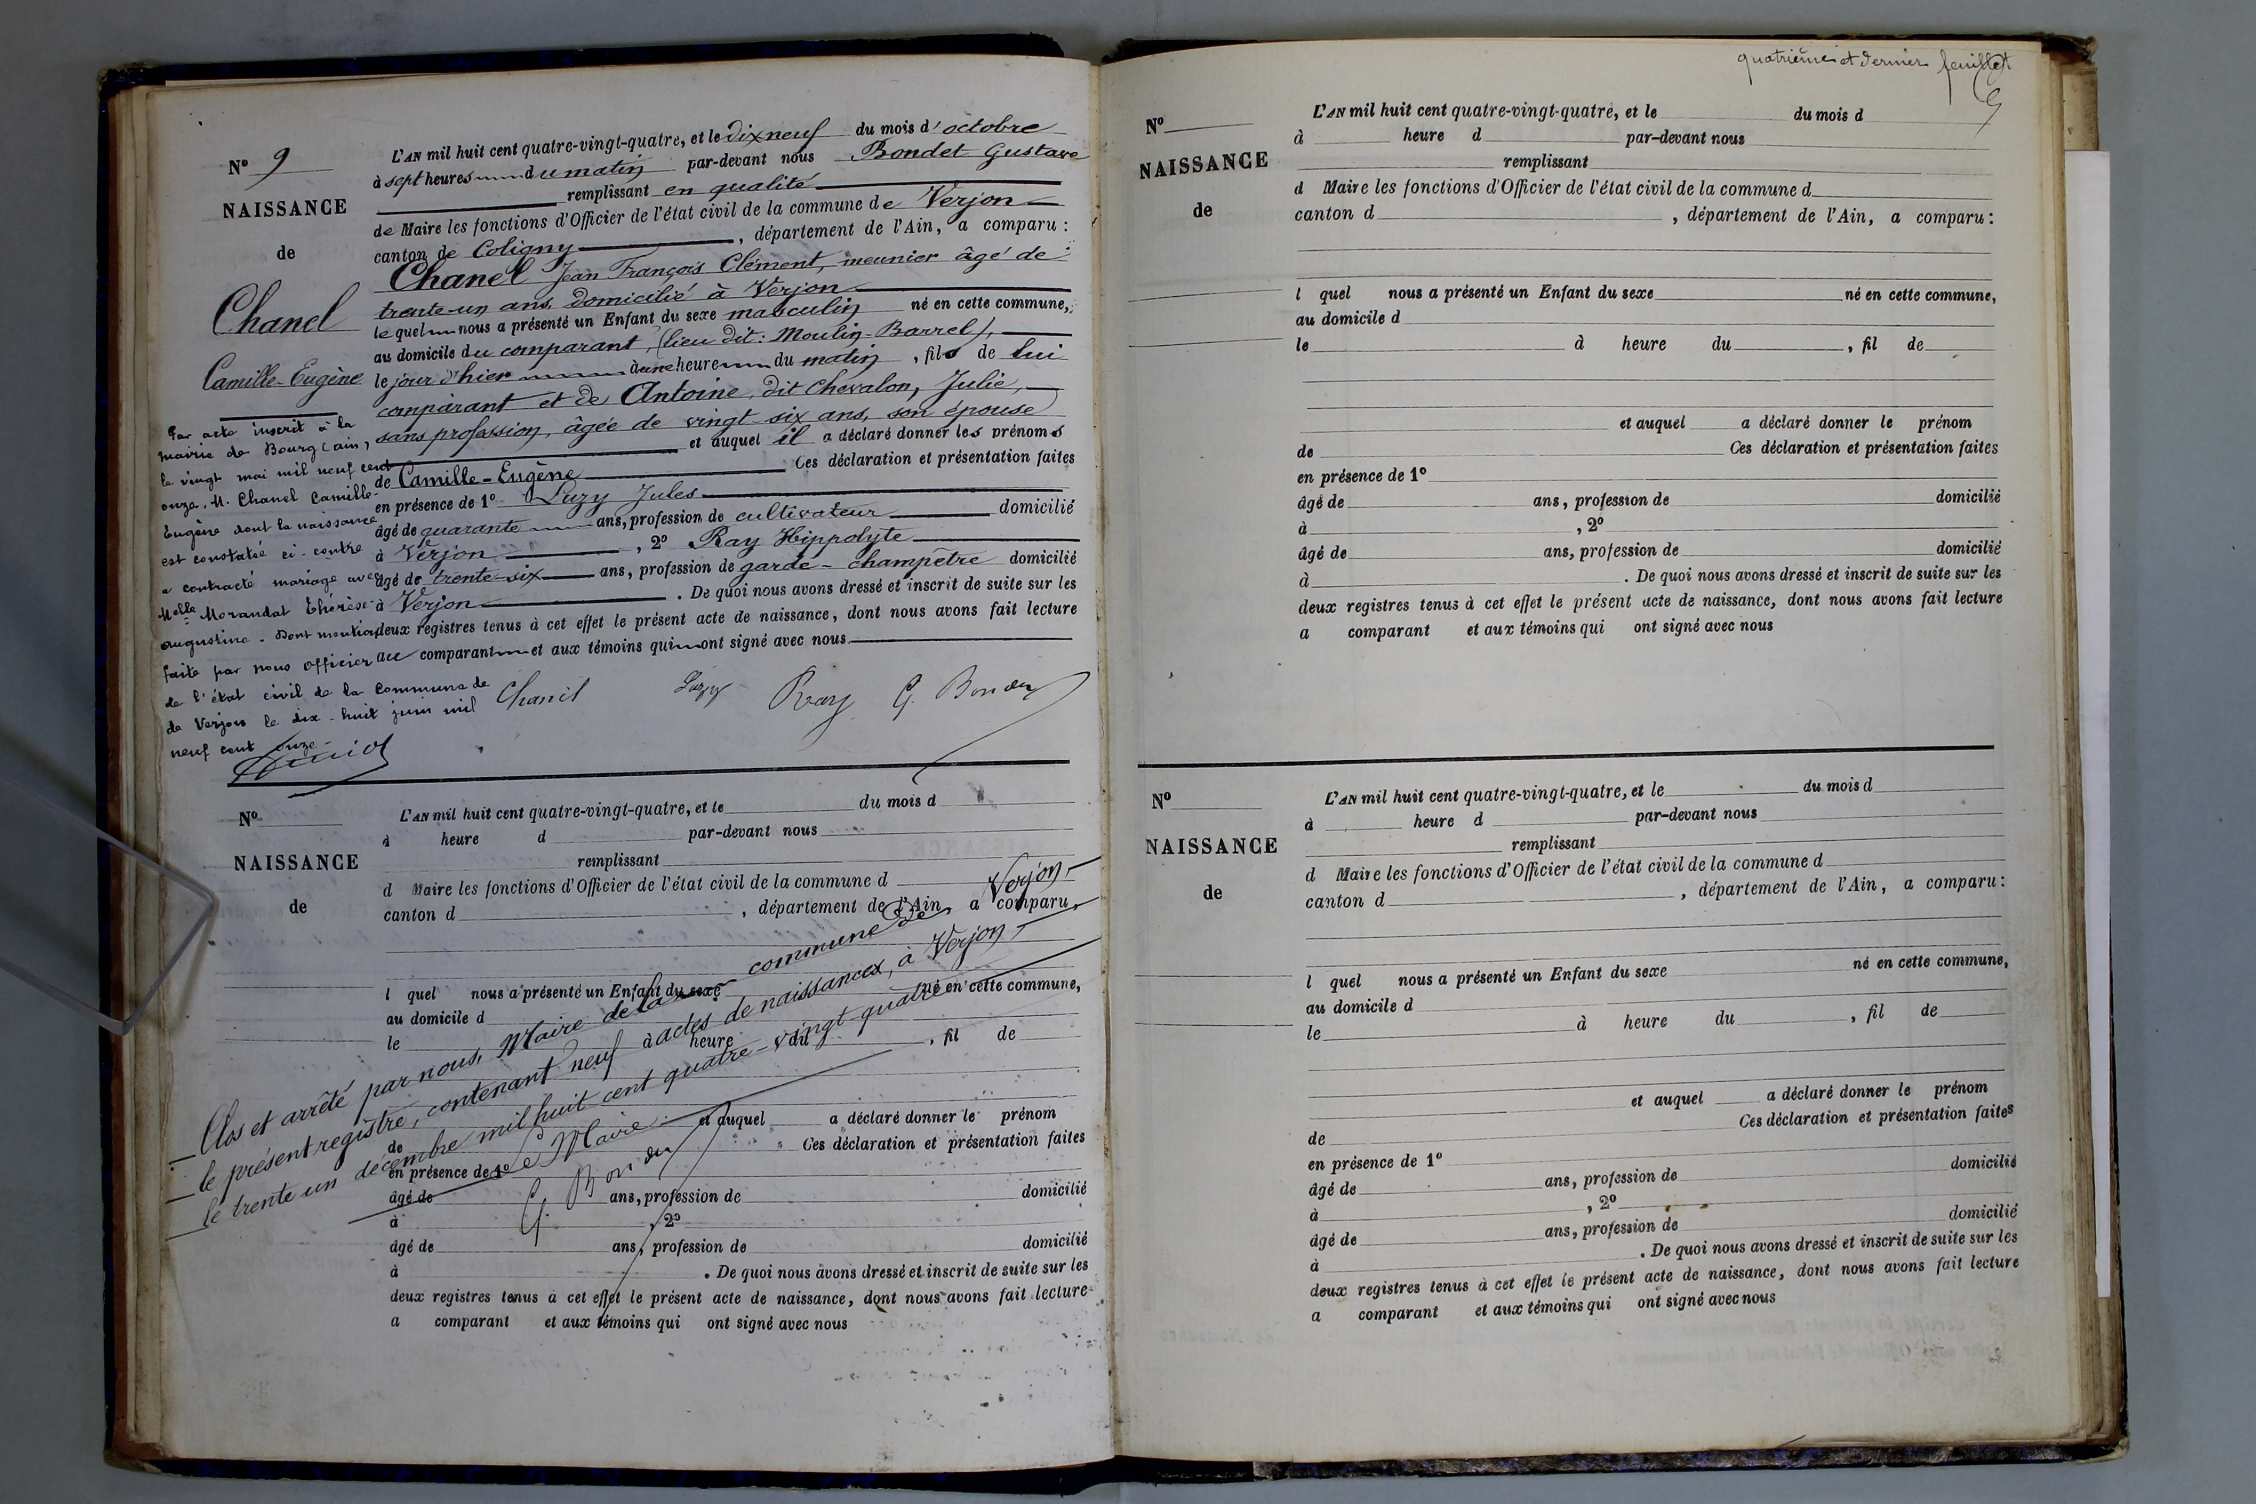 N° 9
NAISSANCE
de
Chanel
Camille-Eugène
L'AN mil huit cent quatre-vingt-quatre, et le dix neuf du mois d'octobre
à sept heures du matin par-devant nous Bondet Gustave
remplissant en qualité
de Maire les fonctions d'Officier de l'état civil de la commune de Verjon
canton de Coligny, département de l'Ain, a comparu :
Chanel Jean François Clément, meunier âgé de
trente-un ans, domicilié à Verjon
le quel nous a présenté un Enfant du sexe masculin né en cette commune,
au domicile du comparant, (lieu dit : Moulin-Barrel),
le jour d'hier à une heure du matin, fils de lui
comparant et de Antoine, dit Chevalon, Julie,
sans profession, âgée de vingt-six ans, son épouse
et auquel il a déclaré donner les prénoms
de Camille-Eugène Ces déclaration et présentation faites
en présence de 1° Luzy Jules
âgé de quarante ans, profession de cultivateur domicilié
à Verjon, 2° Ray Hippolyte
âgé de trente-six ans, profession de garde-champêtre domicilié
à Verjon. De quoi nous avons dressé et inscrit de suite sur les
deux registres tenus à cet effet le présent acte de naissance, dont nous avons fait lecture
au comparant et aux témoins qui ont signé avec nous
Chanel Luzy Ray G. Bondet
Par acte inscrit à la
mairie de Bourg (ain,
le vingt mai mil neuf cent
onze, M. Chanel Camille-
Eugène dont la naissance
est constatée ci-contre
a contracté mariage avec
Melle Morandat Thérèse-
augustine. Dont mention
faite par nous officier
de l'état civil de la Commune de
de Verjon le dix-huit juin mil
neuf cent onze.
N°
NAISSANCE
de
L'AN mil huit cent quatre-vingt-quatre, et le du mois d
à heure d par-devant nous
remplissant
d Maire les fonctions d'Officier de l'état civil de la commune d
canton d , département de l'Ain, a comparu :
l quel nous a présenté un Enfant du sexe né en cette commune,
au domicile d
le à heure du , fil de
et auquel a déclaré donner le prénom
de Ces déclaration et présentation faites
en présence de 1°
âgé de ans, profession de domicilié
à , 2°
âgé de ans, profession de domicilié
à . De quoi nous avons dressé et inscrit de suite sur les
deux registres tenus à cet effet le présent acte de naissance, dont nous avons fait lecture
a comparant et aux témoins qui ont signé avec nous
Clos et arrêté par nous, Maire de la commune de Verjon,
le présent registre, contenant neuf actes de naissances, à Verjon,
le trente un décembre mil huit cent quatre-vingt quatre
Le Maire
G. Bondet
quatrième et dernier feuillet
N°
NAISSANCE
de
L'AN mil huit cent quatre-vingt-quatre, et le du mois d
à heure d par-devant nous
remplissant
d Maire les fonctions d'Officier de l'état civil de la commune d
canton d , département de l'Ain, a comparu :
l quel nous a présenté un Enfant du sexe né en cette commune,
au domicile d
le à heure du , fil de
et auquel a déclaré donner le prénom
de Ces déclaration et présentation faites
en présence de 1°
âgé de ans, profession de domicilié
à , 2°
âgé de ans, profession de domicilié
à . De quoi nous avons dressé et inscrit de suite sur les
deux registres tenus à cet effet le présent acte de naissance, dont nous avons fait lecture
a comparant et aux témoins qui ont signé avec nous
N°
NAISSANCE
de
L'AN mil huit cent quatre-vingt-quatre, et le du mois d
à heure d par-devant nous
remplissant
d Maire les fonctions d'Officier de l'état civil de la commune d
canton d , département de l'Ain, a comparu :
l quel nous a présenté un Enfant du sexe né en cette commune,
au domicile d
le à heure du , fil de
et auquel a déclaré donner le prénom
de Ces déclaration et présentation faites
en présence de 1°
âgé de ans, profession de domicilié
à , 2°
âgé de ans, profession de domicilié
à . De quoi nous avons dressé et inscrit de suite sur les
deux registres tenus à cet effet le présent acte de naissance, dont nous avons fait lecture
a comparant et aux témoins qui ont signé avec nous